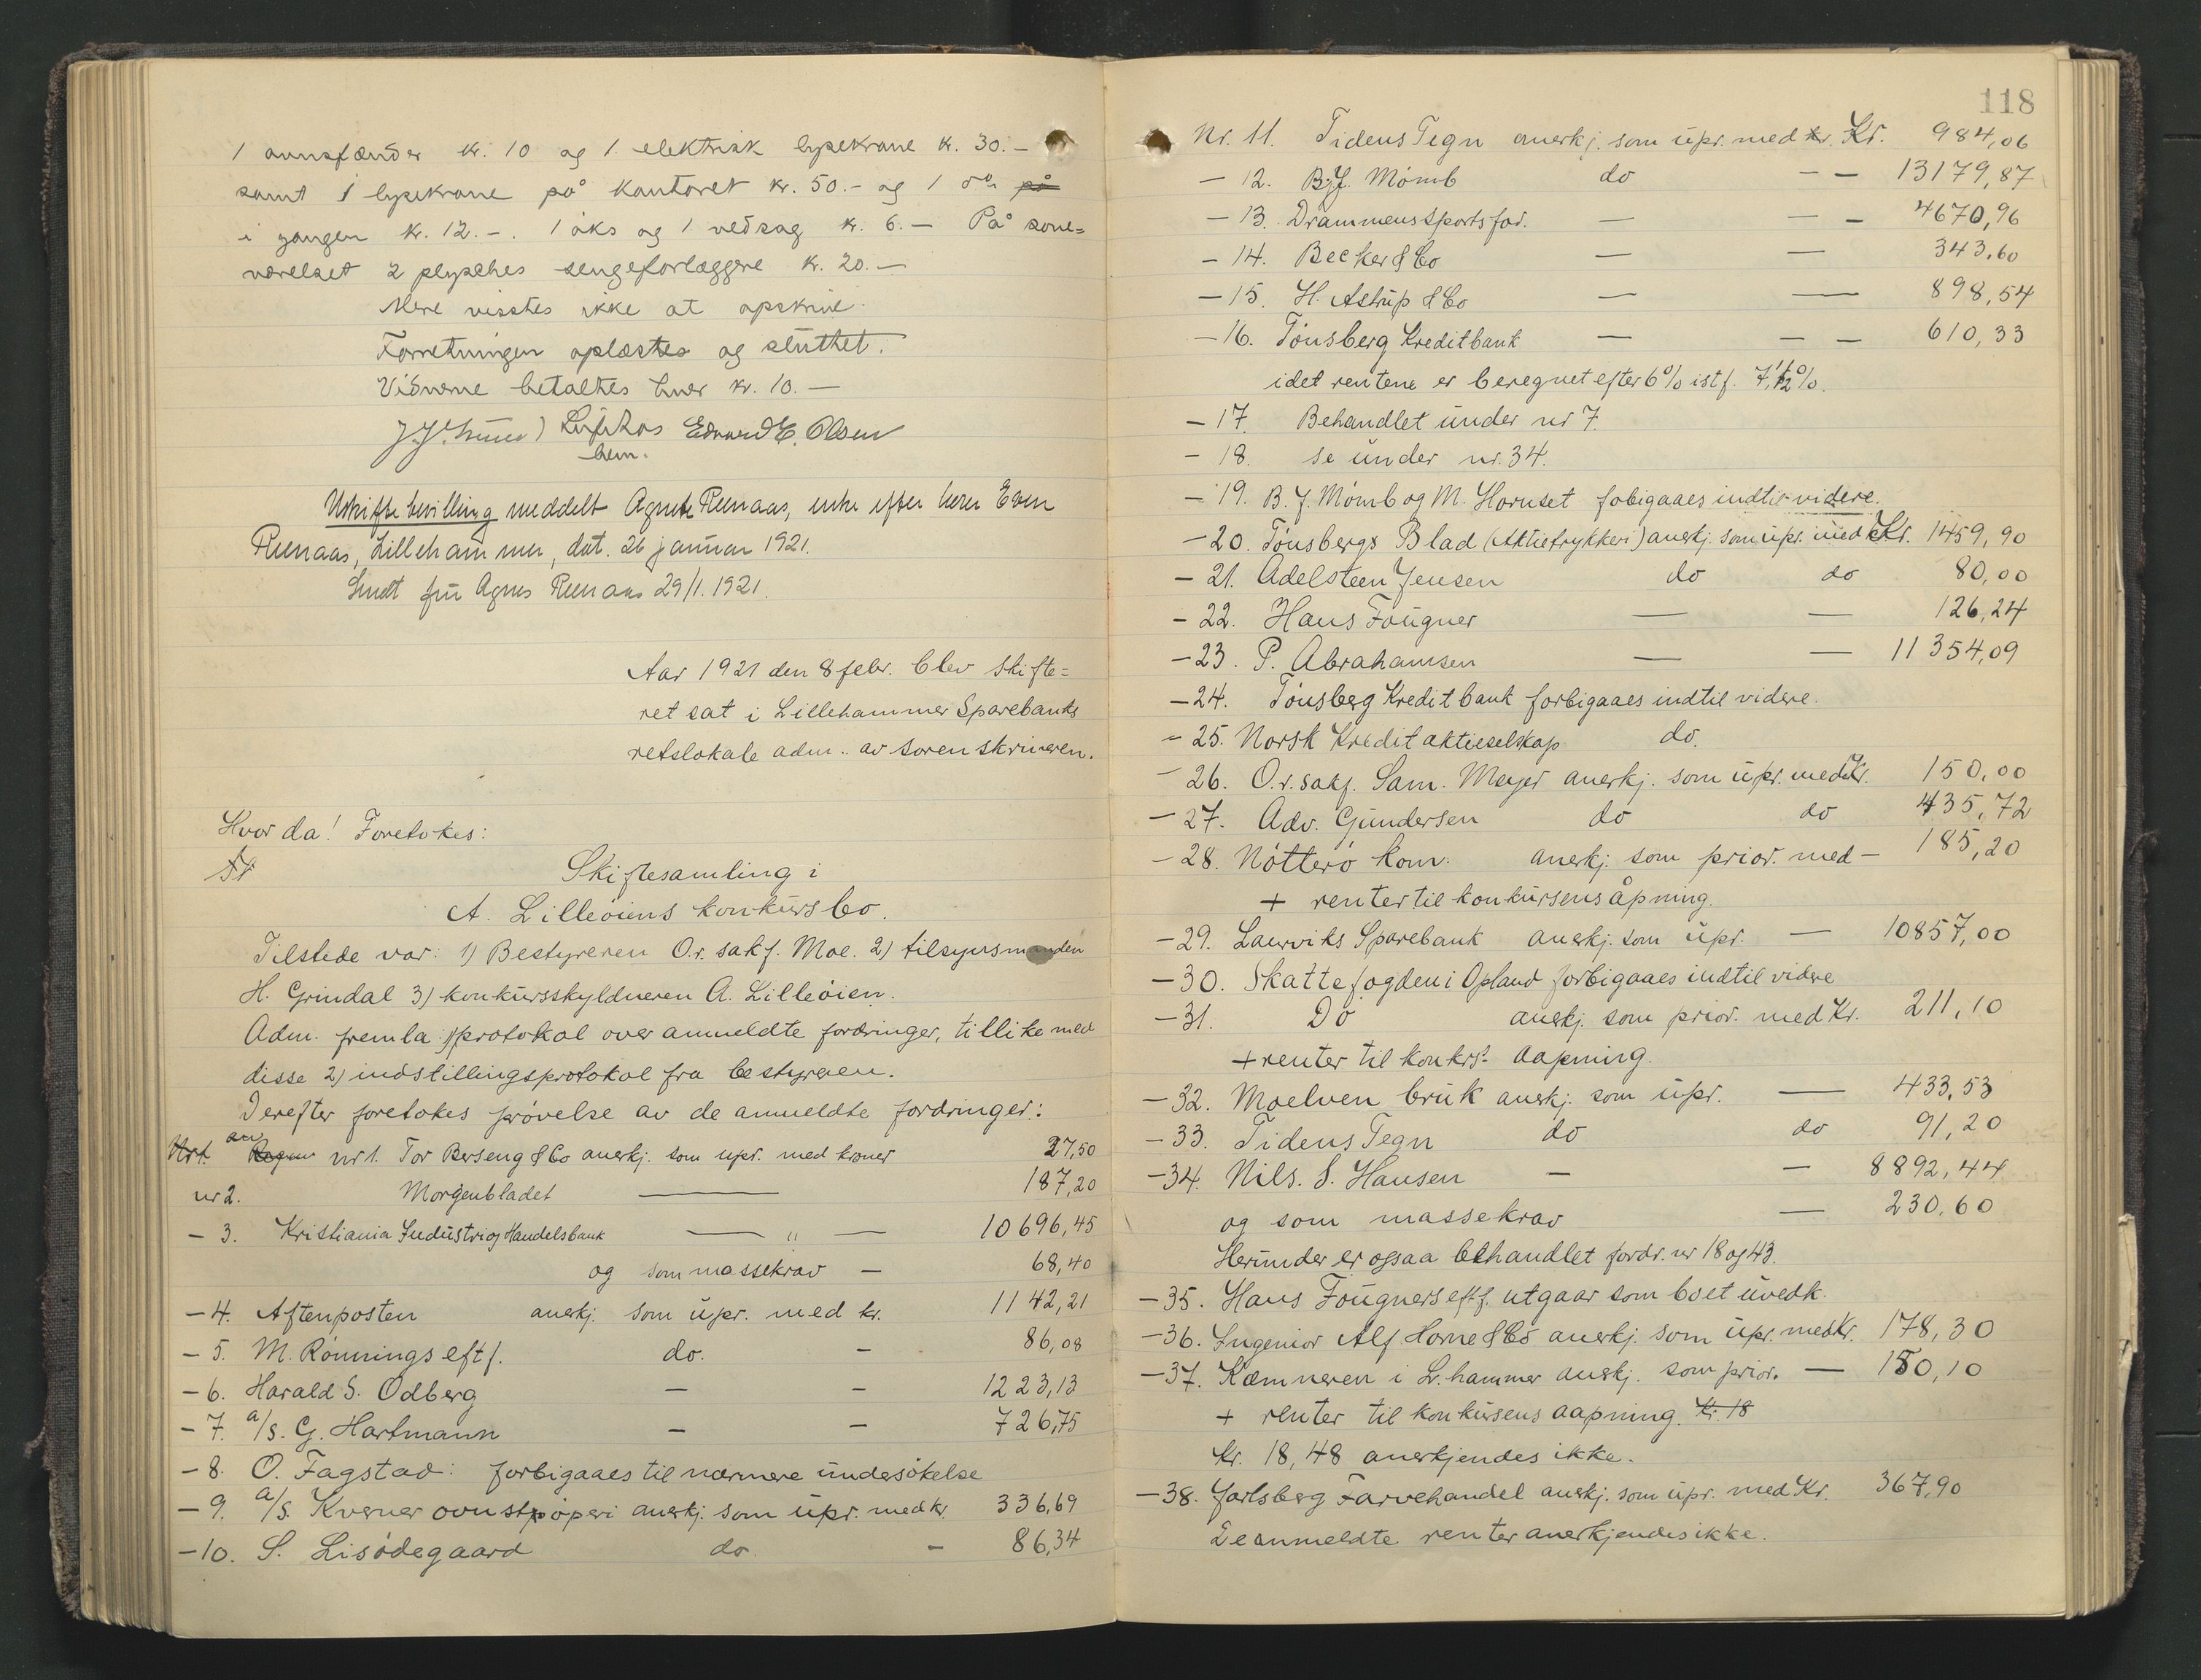 1 ovnsfænder kr. 10 og 1 elektrisk lysekrone kr. 30.-
samt 1 lysekrone på kontoret kr. 50.- og 1 do på
i gangen kr. 12.-. 1 øks og 1 vedsag kr. 6.- På sove=
værelset 2 plysches sengeforlæggere kr. 20.-
Mere visstes ikke at opskrive.
Forretningen oplæstes og sluttet.
Vidnerne betaltes hver kr. 10.-
Edvard E. Olsen
Uskiftebevilling meddelt Agnete Renaas, enke efter herr Even
Renaas, Lillehammer, dat. 26 januar 1921.
Sendt fru Agnes Renaas 29/1. 1921.
Aar 1921 den 8 febr. blev skifte=
ret sat i Lillehammer Sparebanks
retslokale adm. av sorenskriveren.
Hvor da! Foretokes:
Skiftesamling i
A. Lilleöiens konkursbo.
Tilstede var: 1) Bestyreren O.r. sakf. Moe. 2) tilsynsmanden
H. Grindal 3) konkursskyldneren A. Lilleöien.
Adm. fremla 1) protokol over anmeldte fordringer, tillike med
disse 2) indstillingsprotokol fra bestyreren.
Derefter foretokes prövelse av de anmeldte fordringer:
nr 1. Tor Berseng & Co anerkj. som upr. med kroner 27,50
nr 2. Morgenbladet — 187,20
- 3. Kristiania Industri og Handelsbank — " — 10696,45
og som massekrav — 68,40
- 4. Aftenposten anerkj. som upr. med kr. 1142,21
- 5. M. Rönnings eftf. do. - 86,08
- 6. Harald S. Ödberg - - 1223,13
- 7. a/s. G. Hartmann - - 726,75
- 8. O. Fagstad: forbigaaes til nærmere undersökelse
- 9. a/s. Kværner ovnstöperi anerkj. som upr. med kr. 336,69
- 10. S. Lisödegaard do. - 86,34
118
Nr. 11. Tidens Tegn anerkj. som upr. med kr. Kr. 984,06
- 12. B.J. Mömb do - - 13179,87
- 13. Drammens Sportsfor. — - - 4670,96
- 14. Becker & Co — — 343,60
- 15. H. Astrup & Co — — 898,54
- 16. Tönsberg Kreditbank — - - 610,33
idet rentene er beregnet efter 6% istf. 7,1/2%.
- 17. Behandlet under nr 7.
- 18. se under nr. 34.
- 19. B. J. Mömb og M. Hornset fobigaaes indtil videre.
- 20. Tönsbergs Blad (Aktietrykkeri) anerkj. som upr. med Kr. 1459,90
- 21. Adelsteen Jensen do do 80,00
- 22. Hans Fougner — — 126,24
- 23. P. Abrahamsen — — 11354,09
- 24. Tönsberg Kreditbank forbigaaes indtil videre.
- 25. Norsk Kreditaktieselskap do.
- 26. O.r. sakf. Sam. Meyer anerkj. som upr. med Kr. 150,00
- 27. Adv. Gundersen do do 435,72
- 28. Nötterö kom. anerkj. som prior. med - 185,20
+ renter til konkursens åpning.
- 29. Laurviks Sparebank anerkj. som upr. — 10857,00
- 30. Skattefogden i Opland forbigaaes indtil videre
- 31. Do anerkj. som prior. med Kr. 211,10
+ renter til konkrs. aapning.
- 32. Moelven bruk anerkj. som upr. — 433,53
- 33. Tidens Tegn do do 91,20
- 34. Nils. S. Hansen - - 8892,44
og som massekrav — 230,60
Herunder er ogsaa behandlet fordr. nr 18 og 43.
- 35. Hans Fougners eftf. utgaar som boet uvedk.
- 36. Ingeniör Alf Horne & Co anerkj. som upr. med Kr. 178,30
- 37. Kæmneren i L.hammer anerkj. som prior. — 150,10
+ renter til konkursens aapning. Kr. 18
Kr. 18,48 anerkjendes ikke.
- 38. Jarlsberg Farvehandel anerkj. som upr. med Kr. 367,90
De anmeldte renter anerkjendes ikke.